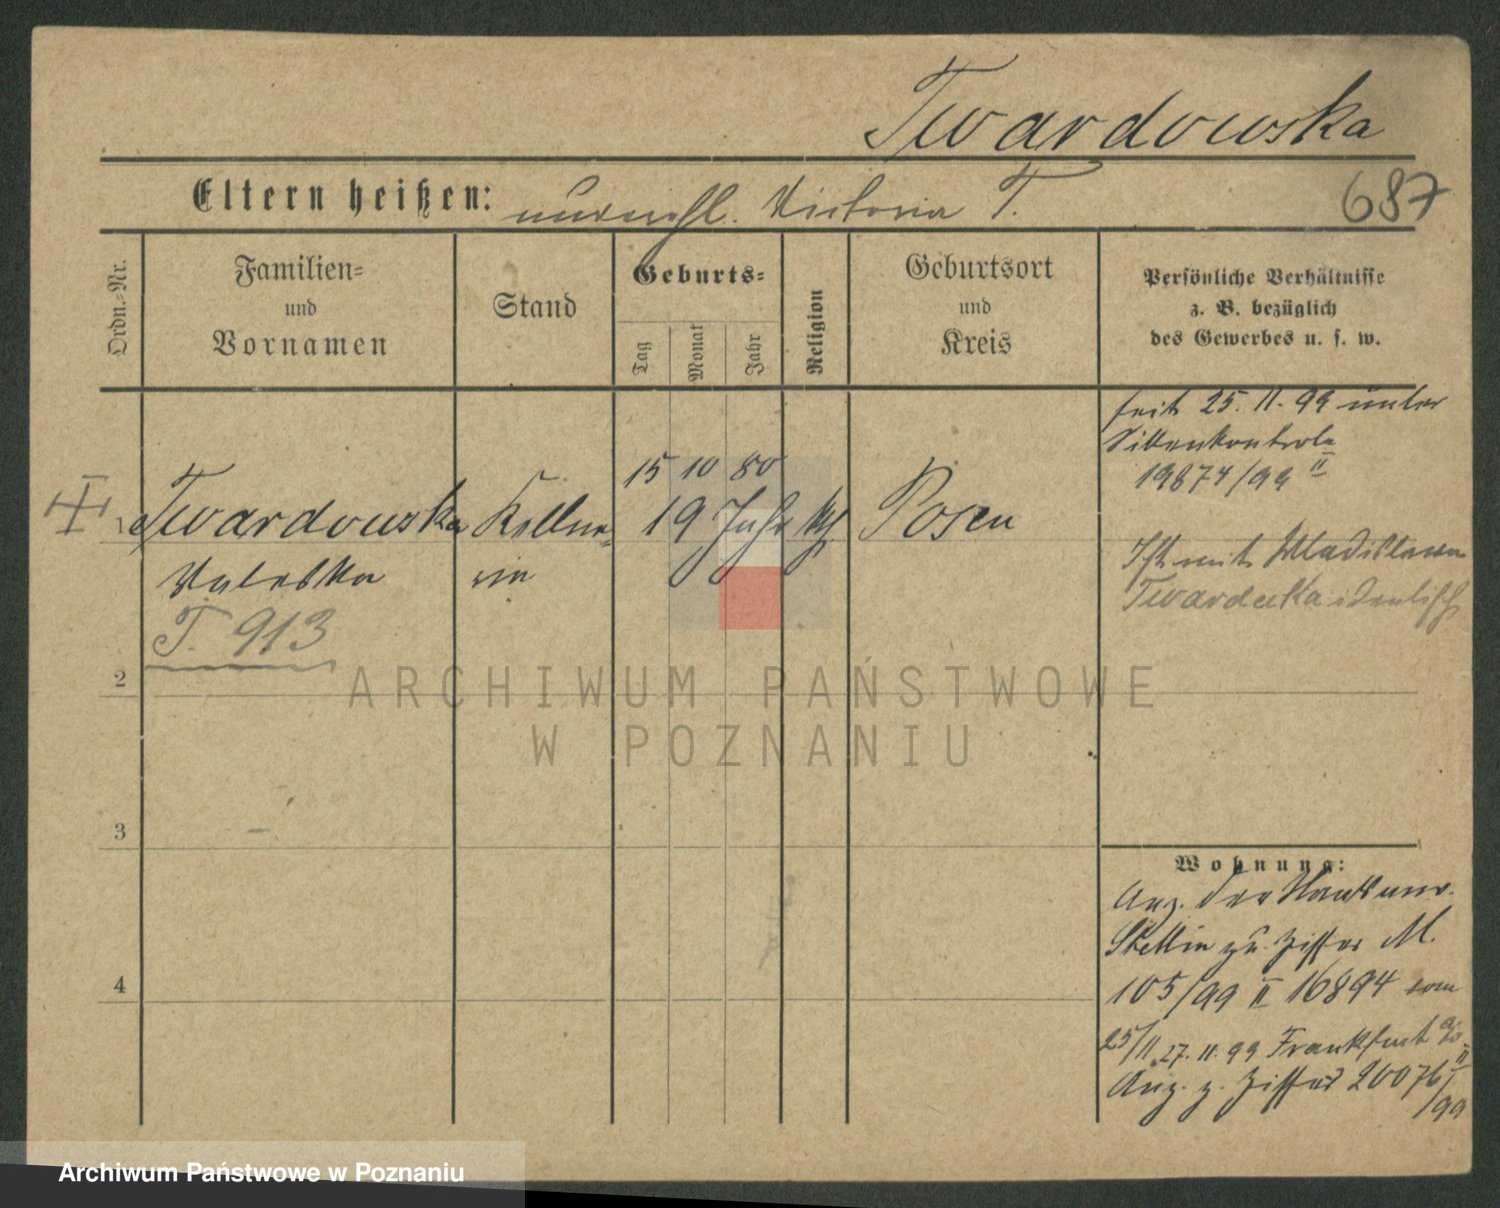 Twardowska
Eltern heißen: unverehl. Victoria T.
687
Ordn.-Nr.
Familien-
und
Vornamen
Stand
Geburts-
Tag
Monat
Jahr
Religion
Geburtsort
und
Kreis
Persönliche Verhältnisse
z. B. bezüglich
des Gewerbes u. s. w.
seit 25. 11. 99 unter
Sittenkontrole
19874/99 II
15 10 80
1 Twardowska Kellne- 19 Jahr kth Posen
Valeska rin
T. 913
Ist mit Wladislawa
identisch
2
3
4
Wohnung:
Anz. der
Stettin zu Ziffer M.
105/99 II 16894 vom
25/11 27. 11. 99 Frankfurt a/O
Anz. z. Ziffer 20076 II
/99
ARCHIWUM PAŃSTWOWE
W POZNANIU
Archiwum Państwowe w Poznaniu